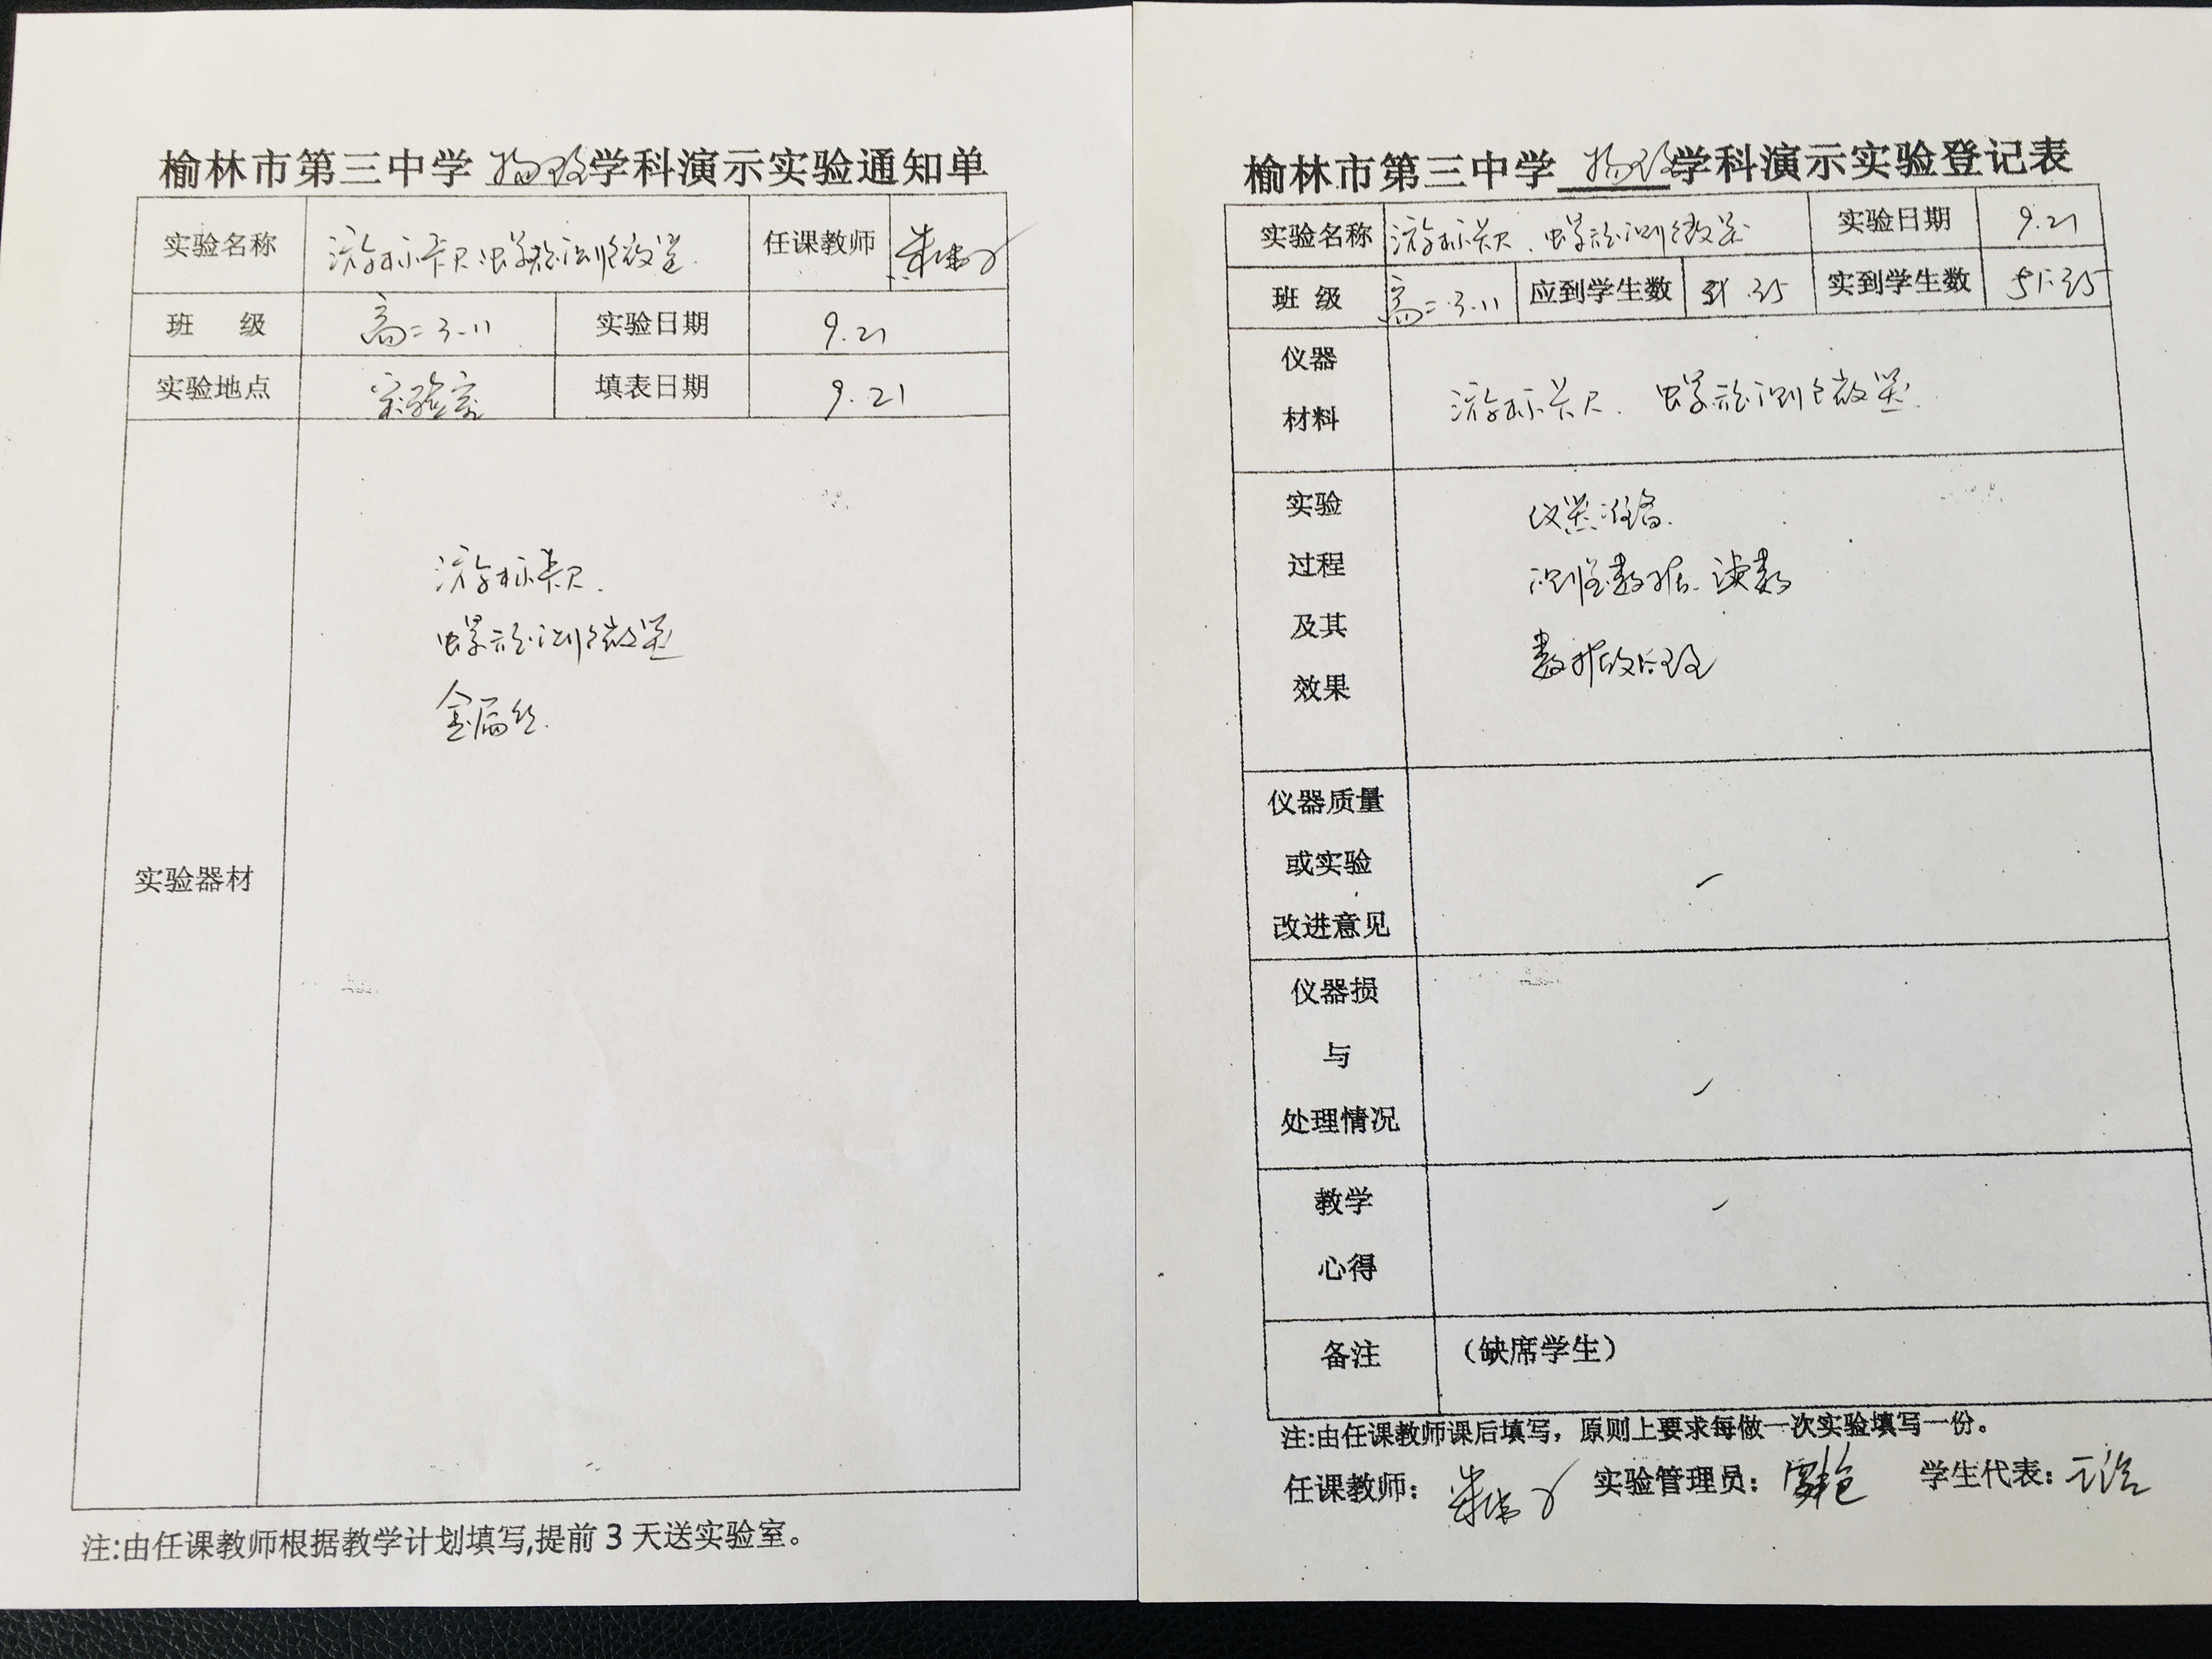 榆林市第三中学 物理 学科演示实验通知单
实验名称 游标卡尺.螺旋测微器. 任课教师
班 级 高二 3.11 实验日期 9.21
实验地点 实验室 填表日期 9.21
实验器材
游标卡尺.
螺旋测微器
金属丝.
注:由任课教师根据教学计划填写,提前3天送实验室。
榆林市第三中学 物理 学科演示实验登记表
实验名称 游标卡尺、螺旋测微器 实验日期 9.21
班 级 高二.3.11 应到学生数 51.35 实到学生数 51.35
仪器
材料
游标卡尺、螺旋测微器.
实验
过程
及其
效果
仪器准备.
测量数据.读数
数据处理
仪器质量
或实验
改进意见
仪器损
与
处理情况
教学
心得
备注 (缺席学生)
注:由任课教师课后填写，原则上要求每做一次实验填写一份。
任课教师: 实验管理员: 学生代表: